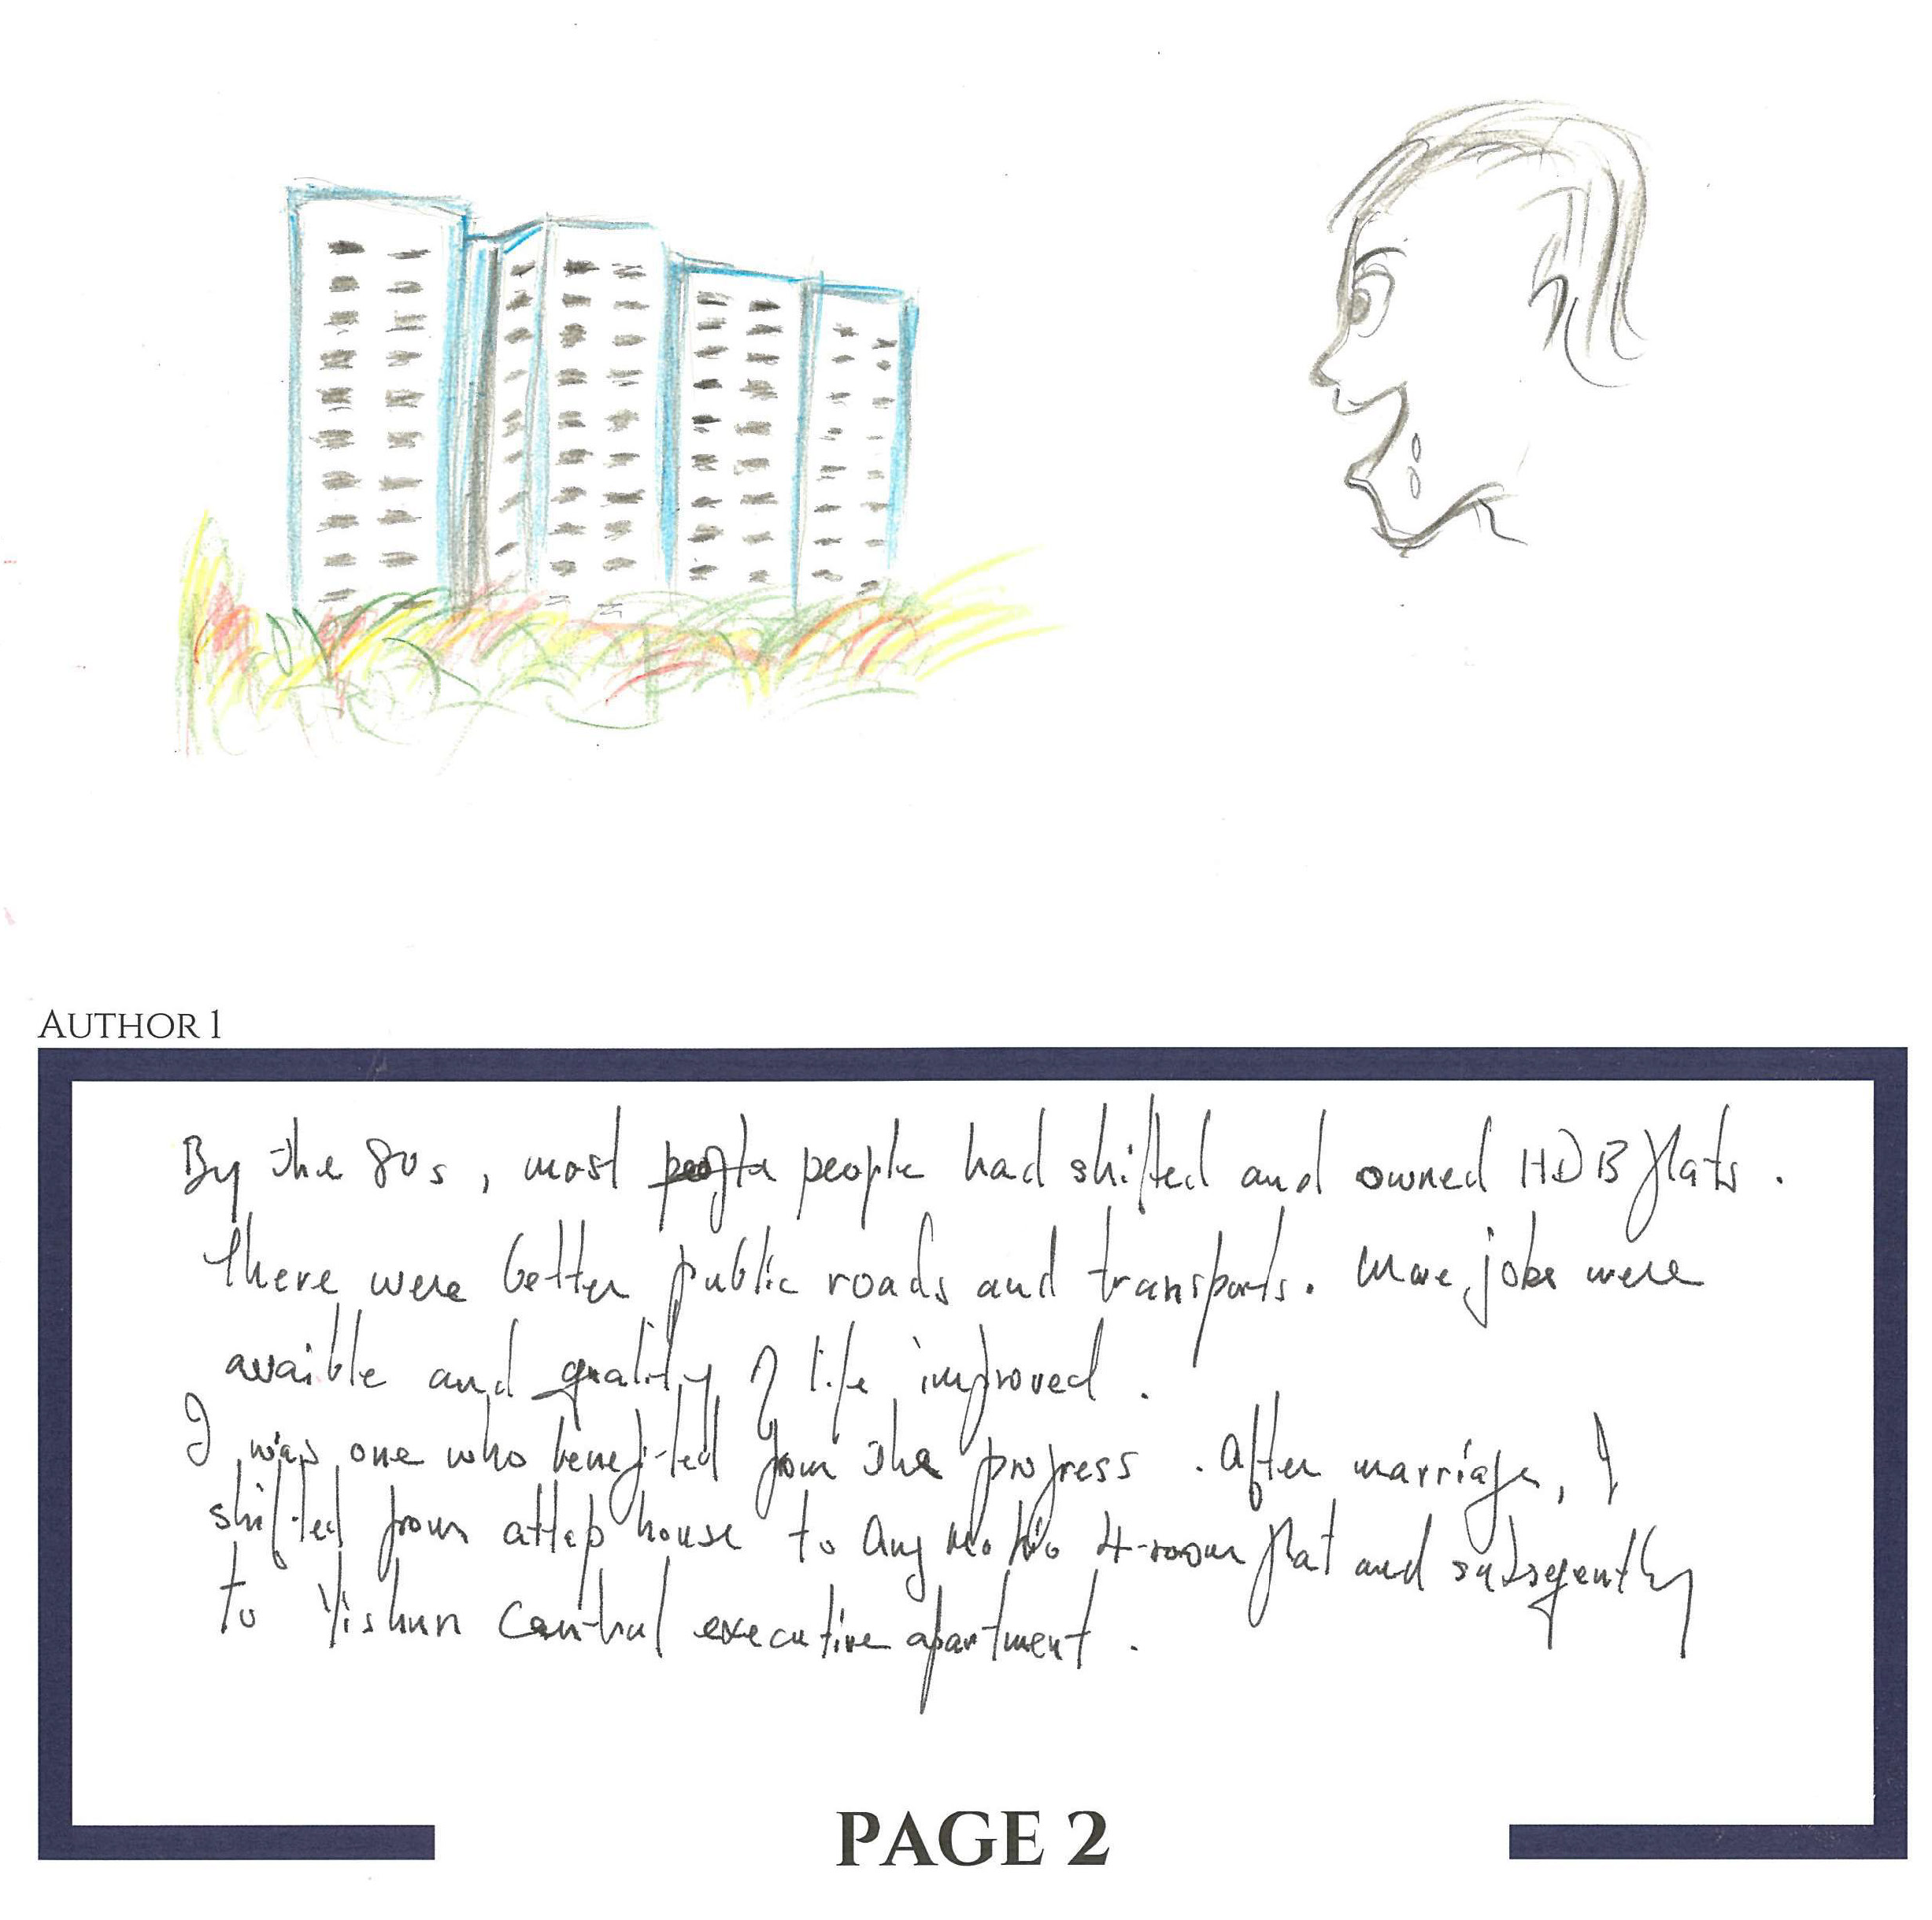 AUTHOR 1
By the 80s, most people had shifted and owned HDB flats.
There were better public roads and transports. More jobs were
avaible and quality of life improved.
I was one who benefited from the progress. After marriage, I
shifted from attap house to Ang Mo Kio 4-room flat and subsqently
to Yishun Central executive apartment.
PAGE 2